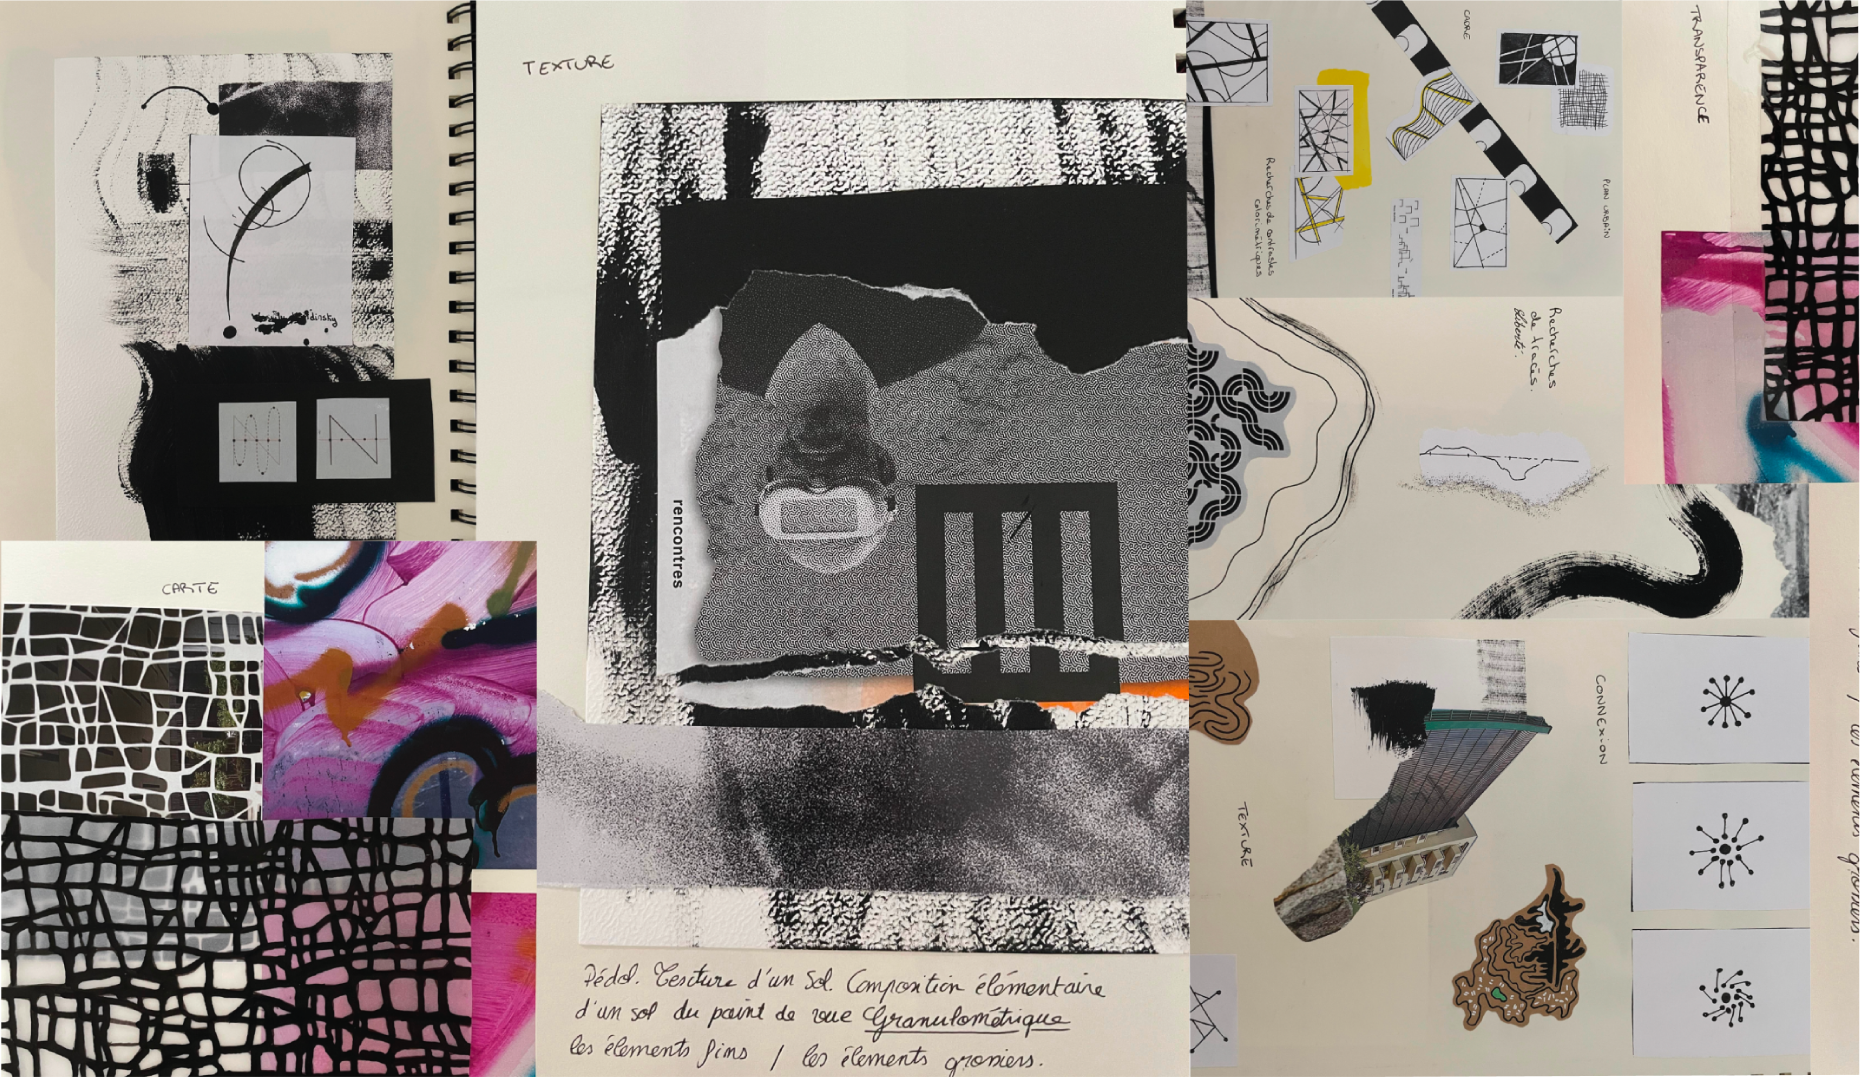 TEXTURE
CARTE
rencontres
Pédol. Texture d'un Sol. Composition élémentaire
d'un sol du point de vue Granulométrique
les élements fins / les élements grossiers.
CADRE
PLAN URBAIN
Recherches de contrastes
colorimétriques
TRANSPARENCE
Recherches
de tracés.
Liberté.
CONNEXION
TEXTURE
les élements grossiers.